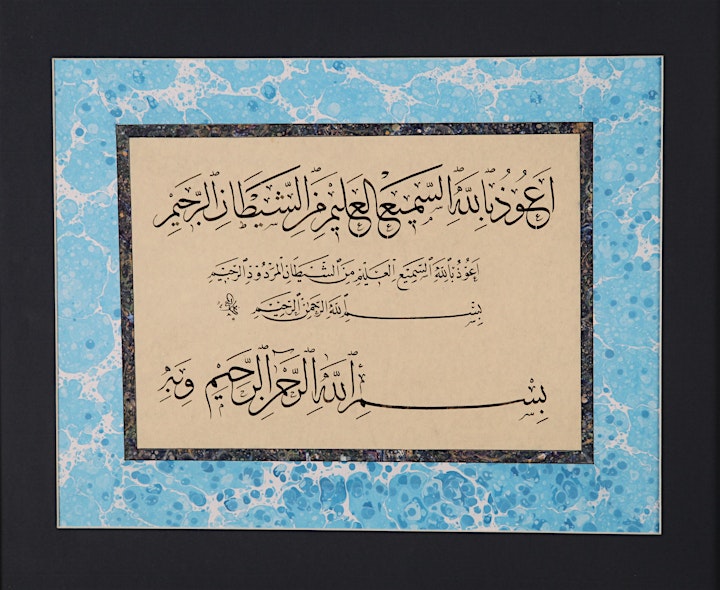 اَعُوذُ بِاللّٰهِ السَّمِيعِ الْعَلِيمِ مِنَ الشَّيْطَانِ الرَّجِيمِ
اَعُوذُ بِاللّٰهِ السَّمِيعِ الْعَلِيمِ مِنَ الشَّيْطَانِ الْمَرْدُودِ الرَّجِيمِ
بِسْمِ اللّٰهِ الرَّحْمٰنِ الرَّحِيمِ
بِسْمِ اللّٰهِ الرَّحْمٰنِ الرَّحِيمِ وَبِهِ